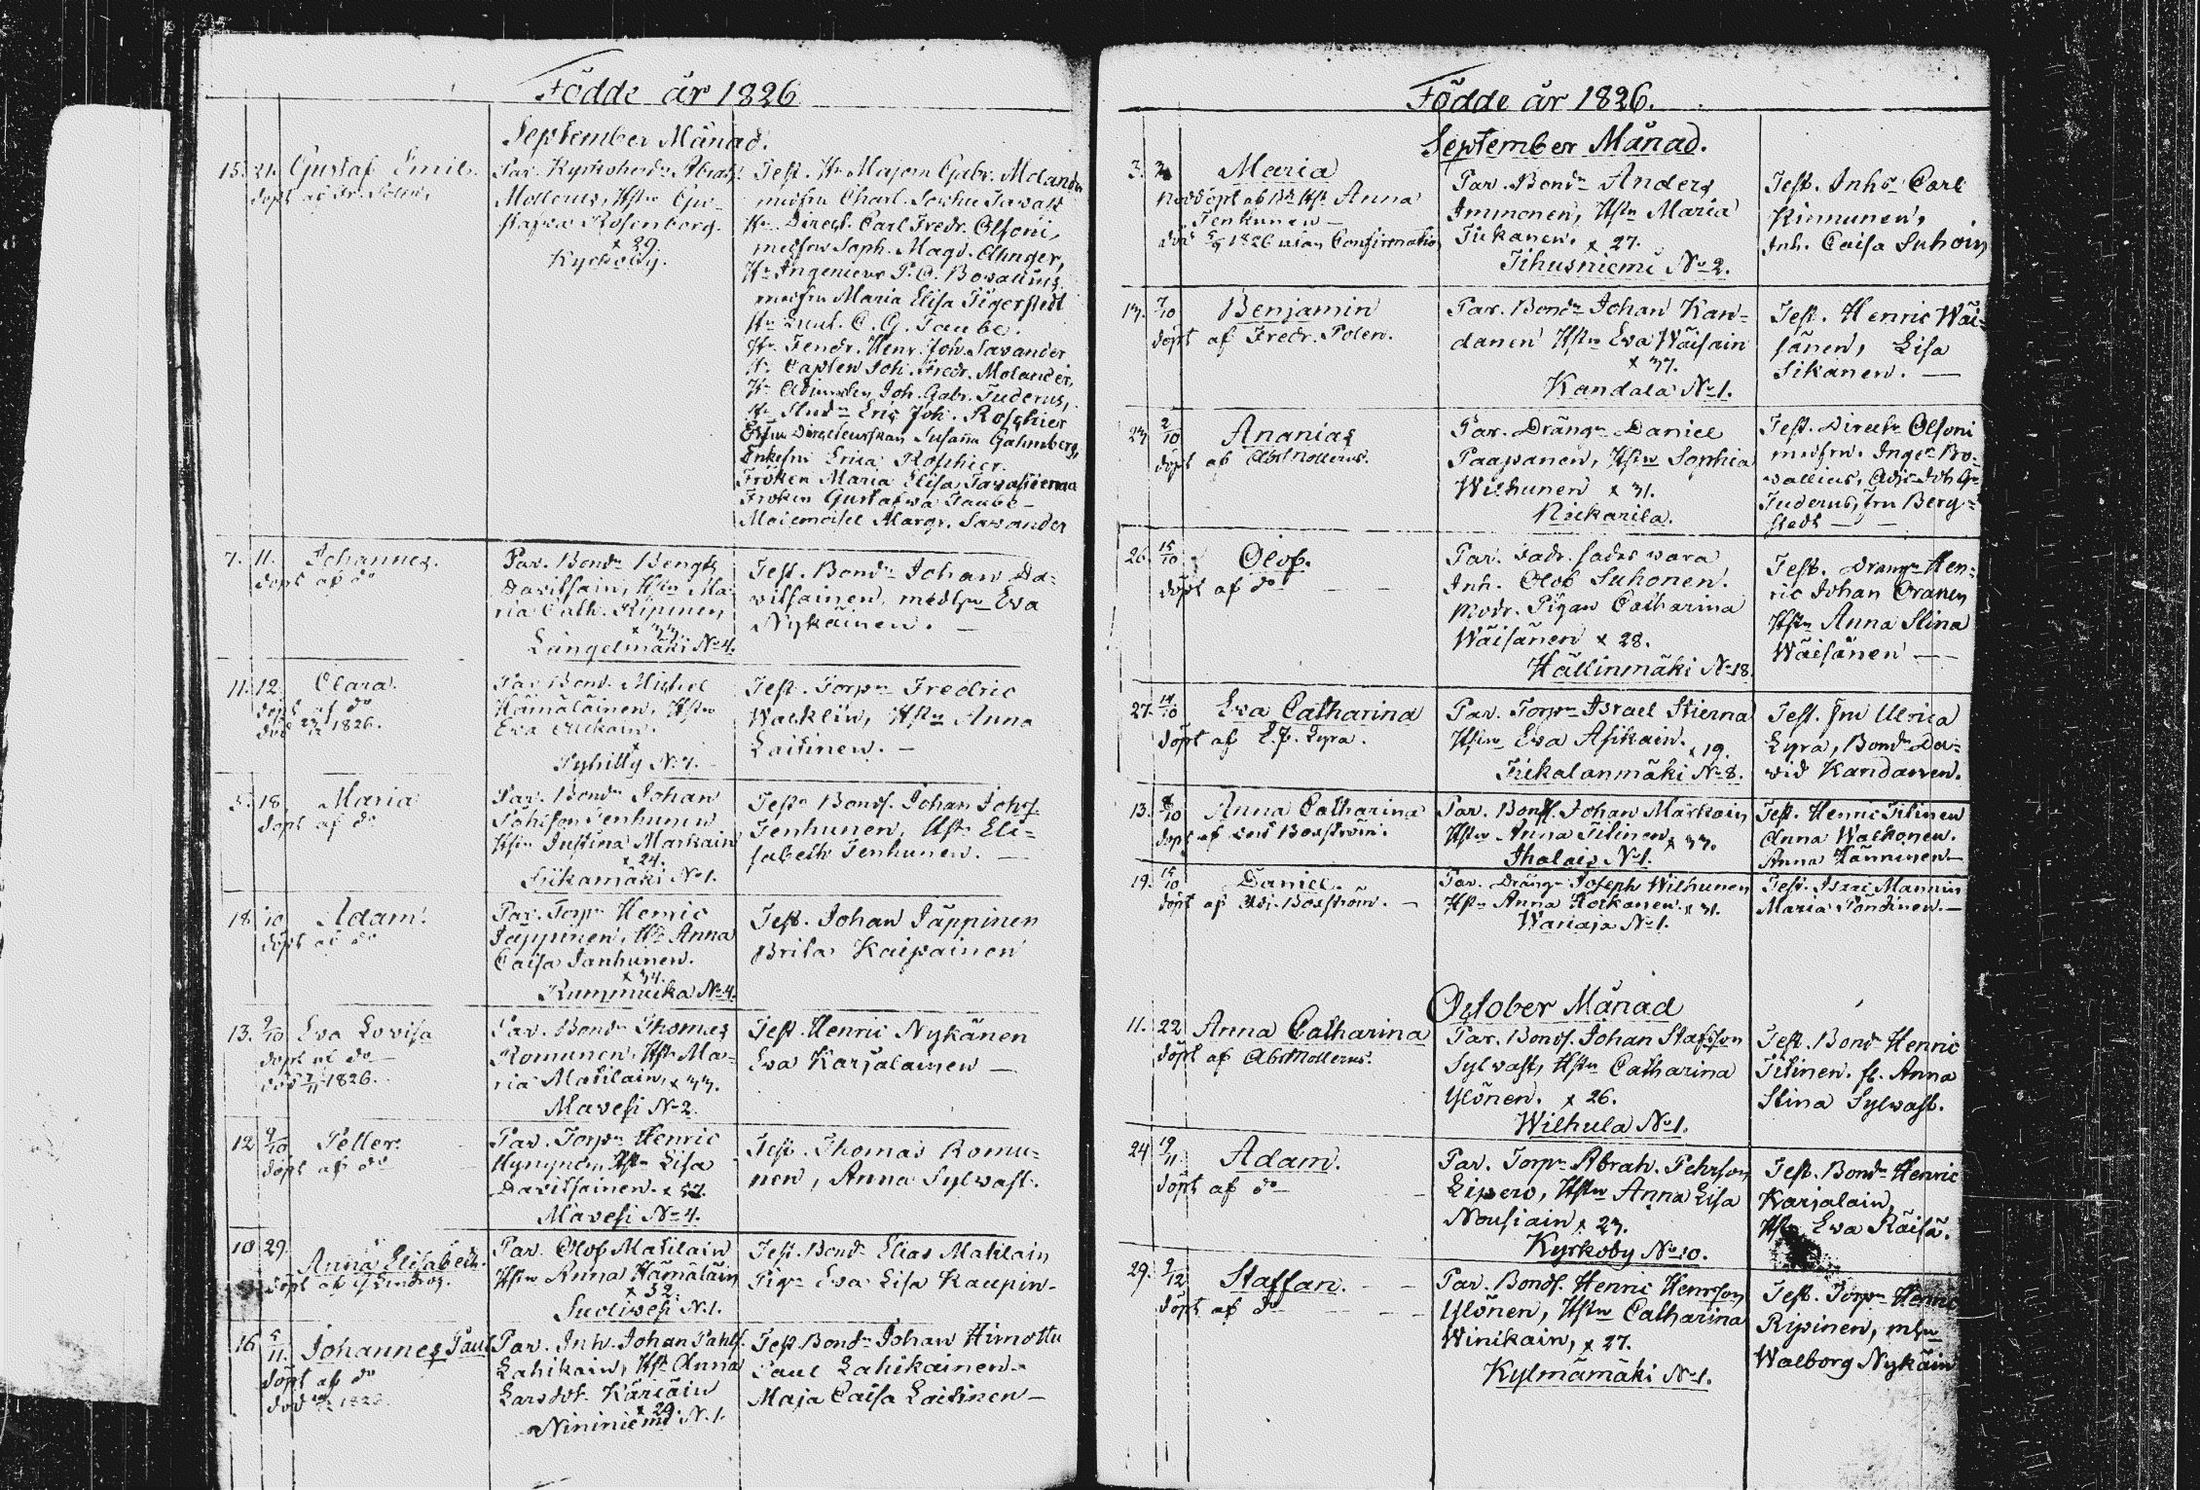 Födde år 1826
September Månad.
15. 21. Gustaf Emil.
Par. Kyrkoherdn Abrah.
Mollerus, Hstr Gu-
stafwa Rosenborg.
x 29.
Kyrkoby.
Test. Hr Majorn Gabr. Molander
medfru Charl. Sophie
Hr Direct. Carl Fredr. Olsoni,
medfru Soph. Magd.
Hr Ingenieur P. A. Bovallius
medfru Maria Elisa Tigerstedt
Hr Lieut. C. G. Taube.
Hr Fendr. Henr. Joh. Savander
Hr Capten Joh. Fredr. Molander,
Hr Adjuncten Joh. Gabr. Tuderus,
Hr Studn Eric Joh. Roschier
Directeurskan Susanna Gahmberg,
Enkefru Erica Roschier.
Fröken Maria Elisa Tavastsierna
Fröken Gustafwa Taube-
Maiemoisel Margr. Savander
7. 11. Johannes.
döpt af do
Par. Bondn Bengts
Davitsain, Hstn Ma-
ria Cath. Ripinen,
x 33.
Längelmäki No 4.
Test. Bondn Johan Da-
vitsainen, medhn Eva
Nykäinen. -
11. 12. Clara.
döpt af do
död 1826.
Par. Bond. Michel
Hämäläinen, Hstn
Eva
Syhilly No 7.
Test. Torpn Fredric
Wacklin, Hstn Anna
Laitinen. -
5. 18. Maria
döpt af do
Par. Bondn Johan
Tenhunen
Hstn Justina Markain
x 24.
Siikamäki No 1.
Test. Bonds. Johan Johs.
Tenhunen, Hstn Eli-
sabeth Tenhunen. -
18. Adam.
döpt af do
Par. Torpn Henric
Jäppinen, Hst Anna
Caisa Janhunen.
x 34.
Rummukka No 4.
Test. Johan Jäppinen
Brita Kaipainen
13. 9/10 Eva Lovisa
döpt af do -
död 1826.
Par. Bondn Thomas
Romunen, Hstn Ma-
ria Matilain, x 33.
Mavesi No 2.
Test. Henric Nykänen
Eva Karjalainen -
12. 9/10 Petter
döpt af do
Par. Torpn Henric
Hyrynen, Hstn Lisa
Davitsainen. x 37.
Mavesi No 4.
Test. Thomas Romu-
nen, Anna Sylvast.
10. 29. Anna Elisabeth.
döpt af
Par. Olof Matilain
Hstn Anna Hämäläin
x 32.
Suoivesi No 1.
Test. Bondn Elias Matilain
Pign Eva Lisa Kaupin-
16. 5/11 Johannes Paul
döpt af do
död 1826.
Par. Inh. Johan Pahls.
Lahikain, Hstn Anna
Larsdotr Käriäin
x 29.
Nininiemi No 1.
Test Bondn Johan Himottu
Paul Lahikainen
Maja Caisa Laitinen -
Födde år 1826.
September Månad.
3. Maria
nöddöpt af Hst Anna
Tenhunen -
död 5/9 1826 utan Confirmation
Par. Bondn Anders
Immonen, Hstn Maria
Tiikanen. x 27.
Jihusniemi No 2.
Test. Inhs Carl
Kinnunen,
Inh. Caisa Suhoin
17. 7/10 Benjamin
döpt af Fredr. Polen.
Par. Bondn Johan Kan-
danen Hstn Eva Wäisain
x 37.
Kandala No 1.
Test. Henric Wäi-
sänen, Lisa
Sikanen. -
23. 2/10 Ananias
döpt af Abr Mollerus.
Par. Drängn Daniel
Paapanen, Hstn Sophia
Wilhunen x 31.
Neckarila.
Test. Directr Olsoni
medfru. Ingen. Bo-
vallius, Adj. Joh G.
Tuderus, fru Berg-
stedt -
26. 15/10 Olof.
döpt af do
Par. fadr. sades vara
Inh. Olof Suhonen.
Modr. Pigan Catharina
Wäisänen x 28.
Hällinmäki No 18.
Test. Drängn Hen-
ric Johan Oranen
Hstn Anna Stina
Wäisänen -
27. 14/10 Eva Catharina
döpt af E. J. Lyra.
Par. Torpn Israel Stierna
Hstn Eva Asikain. x 19.
Tiekalanmäki No 8.
Test. fru Ulrica
Lyra, Bondn Da-
vid Kandanen.
13. 8/10 Anna Catharina
döpt af Boxström.
Par. Bonds. Johan Markain
Hstn Anna Tilinen x 33.
Ihalais No 1.
Test. Henric Tilinen
Anna Walkonen.
Anna Hänninen -
19. 15/10 Daniel.
döpt af Boxström. -
Par. Drängn Joseph Wilhunen
Hstn Anna Koikanen x 31.
Wariaja No 1.
Test. Isaac Mannin
Maria Pöndinen. -
October Månad
11. 22 Anna Catharina
döpt af Abr Mollerus.
Par. Bonds. Johan Stafsson
Sylvast, Hstn Catharina
Ylönen. x 26.
Wilhula No 1.
Test. Bondn Henric
Tilinen. fl. Anna
Stina Sylvast.
24. 19/11 Adam.
döpt af do -
Par. Torpn Abrah. Pehrson
Lipero, Hstn Anna Lisa
Nousiain x 23.
Kyrkoby No 10.
Test. Bondn Henric
Karjalain,
Hstn Eva Räisä.
29. 9/12 Staffan.
döpt af do
Par. Bonds. Henric Henrsson
Ylönen, Hstn Catharina
Winikain, x 27.
Kylmämäki No 1.
Test. Torpn Henric
Ripinen, mhn
Walborg Nykäin